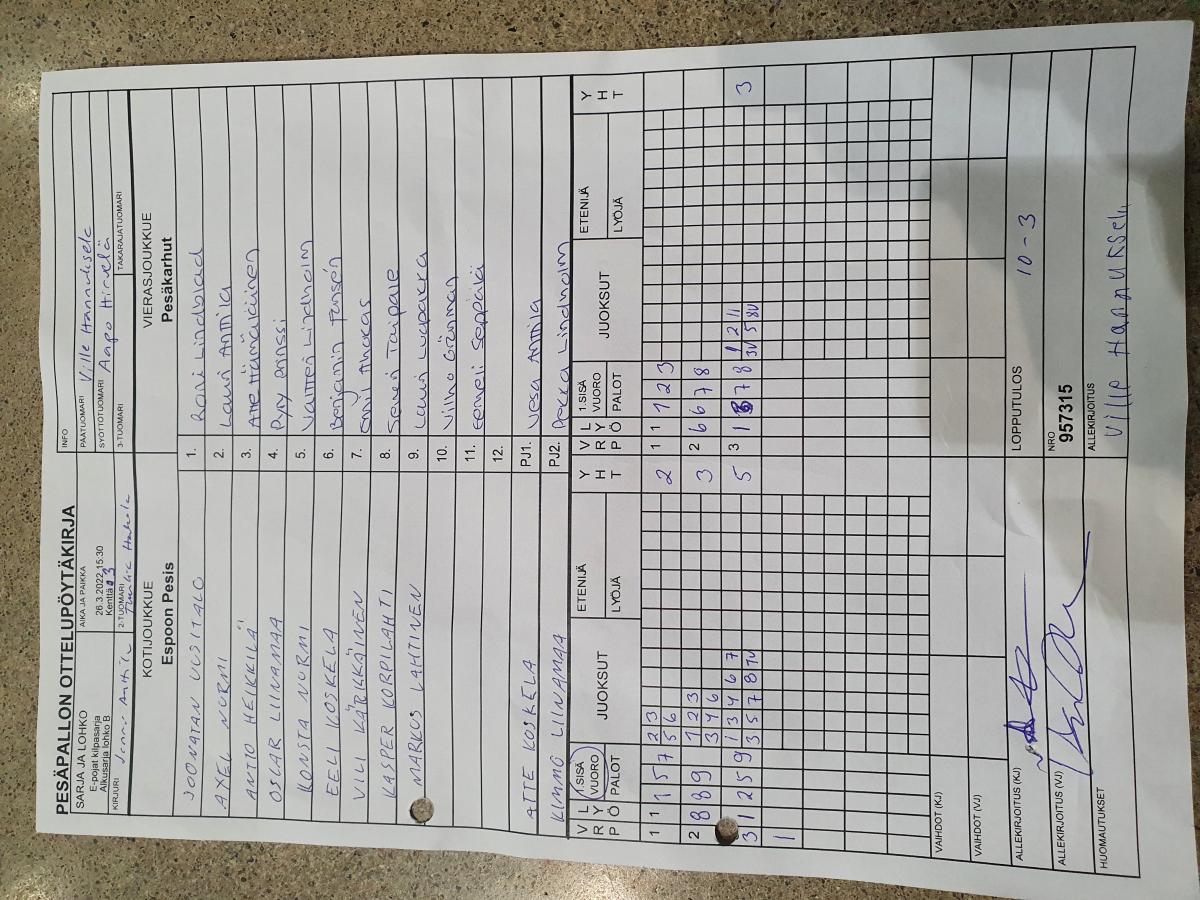 PESÄPALLON OTTELUPÖYTÄKIRJA
SARJA JA LOHKO
E-pojat kilpasarja
Alkusarja lohko B
AIKA JA PAIKKA
26.3.2022 15:30
Kenttä 3
INFO
PÄÄTUOMARI Ville Hannuksela
SYÖTTÖTUOMARI Aapo Hirvelä
KIRJURI
2-TUOMARI
3-TUOMARI
TAKARAJATUOMARI
KOTIJOUKKUE
Espoon Pesis
VIERASJOUKKUE
Pesäkarhut
JOONATAN UUSITALO 1. Roni Lindblad
AXEL NURMI 2. Lauri Anttila
ANTO HEIKKILÄ 3.
OSCAR LIINAMAA 4.
KONSTA NURMI 5. Valtteri Lindholm
EELI KOSKELA 6. Benjamin
VILI KÄRKKÄINEN 7.
KASPER KORPILAHTI 8. Taipale
MARKUS LAHTINEN 9. Lauri
10. Vilho Grönman
11. Eemeli Seppälä
12.
ATTE KOSKELA PJ1. Vesa Anttila
KIMMO LIINAMAA PJ2. Pekka Lindholm
V R P L Y Ö 1.SISÄ VUORO PALOT JUOKSUT ETENIJÄ LYÖJÄ Y H T V R P L Y Ö 1.SISÄ VUORO PALOT JUOKSUT ETENIJÄ LYÖJÄ Y H T
1 1 1 5 7 2 3 2 1 1 1 2 3
5 6
2 8 8 9 1 2 3 3 2 6 6 7 8
3 4 6
3 1 2 5 9 1 3 4 6 7 5 3 1 7 8 1 2 11 3
3 5 7 8 3V 5 8V
1
VAIHDOT (KJ)
VAIHDOT (VJ)
ALLEKIRJOITUS (KJ)
LOPPUTULOS 10-3
ALLEKIRJOITUS (VJ)
NRO
957315
HUOMAUTUKSET
ALLEKIRJOITUS
VILLE HANNUKSELA